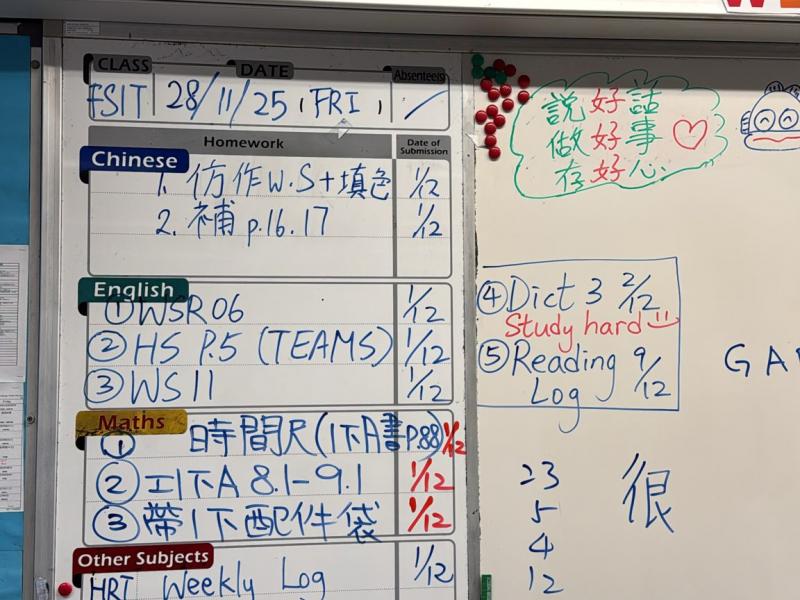 CLASS DATE Absentee(s)
28/11/25 (FRI)
Homework Date of Submission
Chinese
1. 仿作W.S+填色 1/12
2. 補 p.16.17 1/12
English
① WSR06 1/12
② HS P.5 (TEAMS) 1/12
③ WS11 1/12
Maths
① 時間尺(1下A書P88) 1/12
② 工1下A 8.1-9.1 1/12
③ 帶1下配件袋 1/12
Other Subjects
HRT Weekly Log 1/12
說好話
做好事
存好心
④ Dict 3 2/12
Study hard
⑤ Reading Log 9/12
GA
23
5
4
12
很